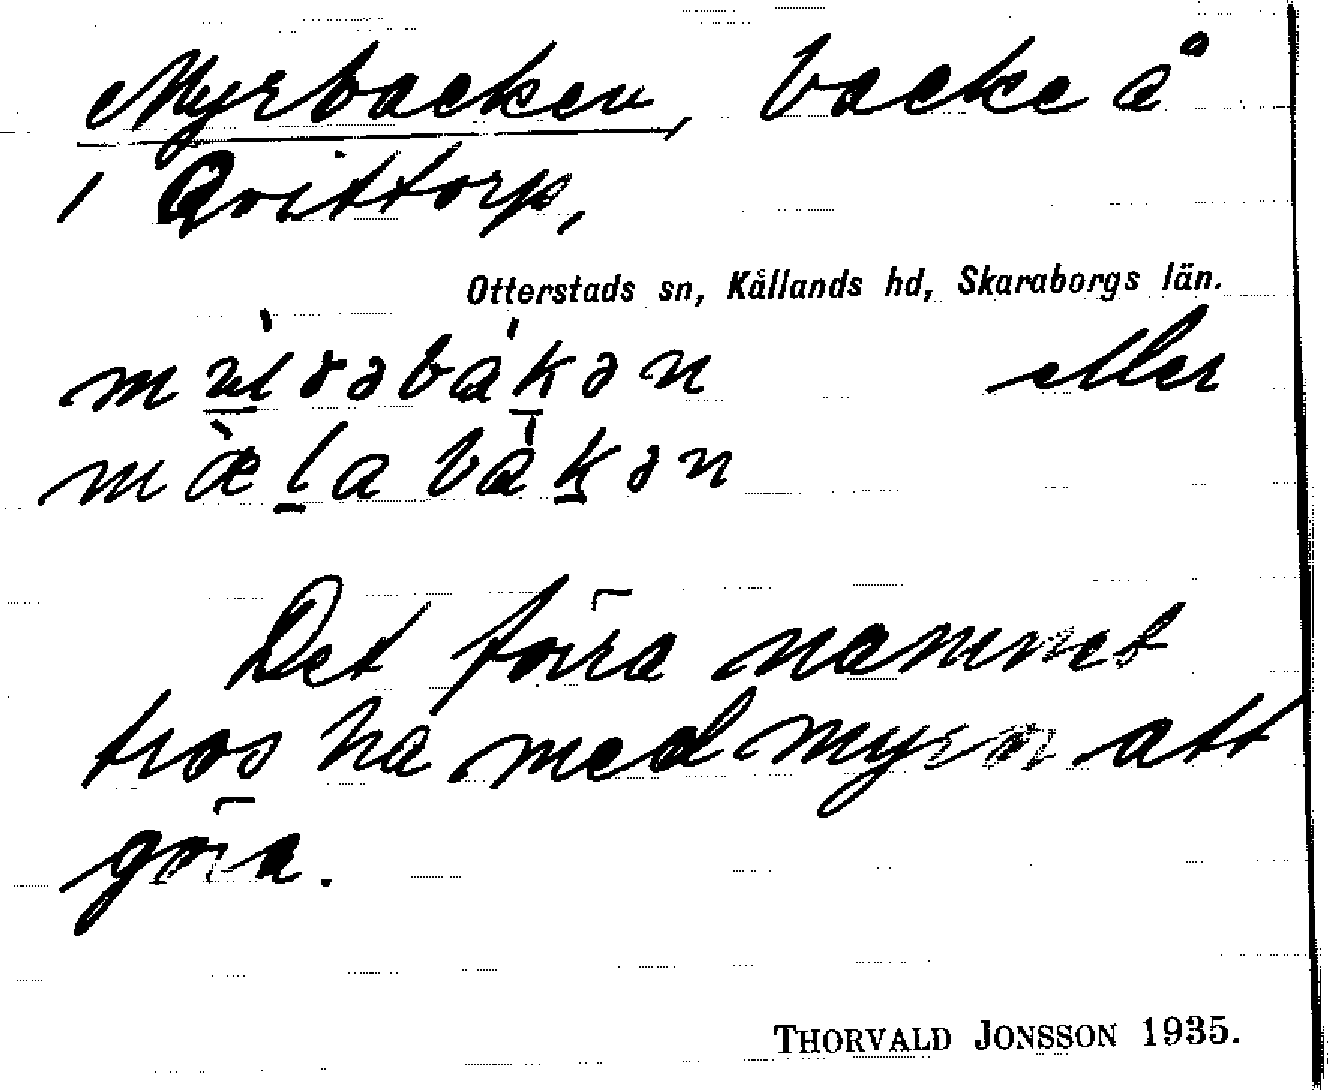 Myrbacken, backe å
i Qvittorp,
Otterstads sn, Kållands hd, Skaraborgs län.
eller
Det förra namnet
tros ha med myror att
göra.
THORVALD JONSSON 1935.